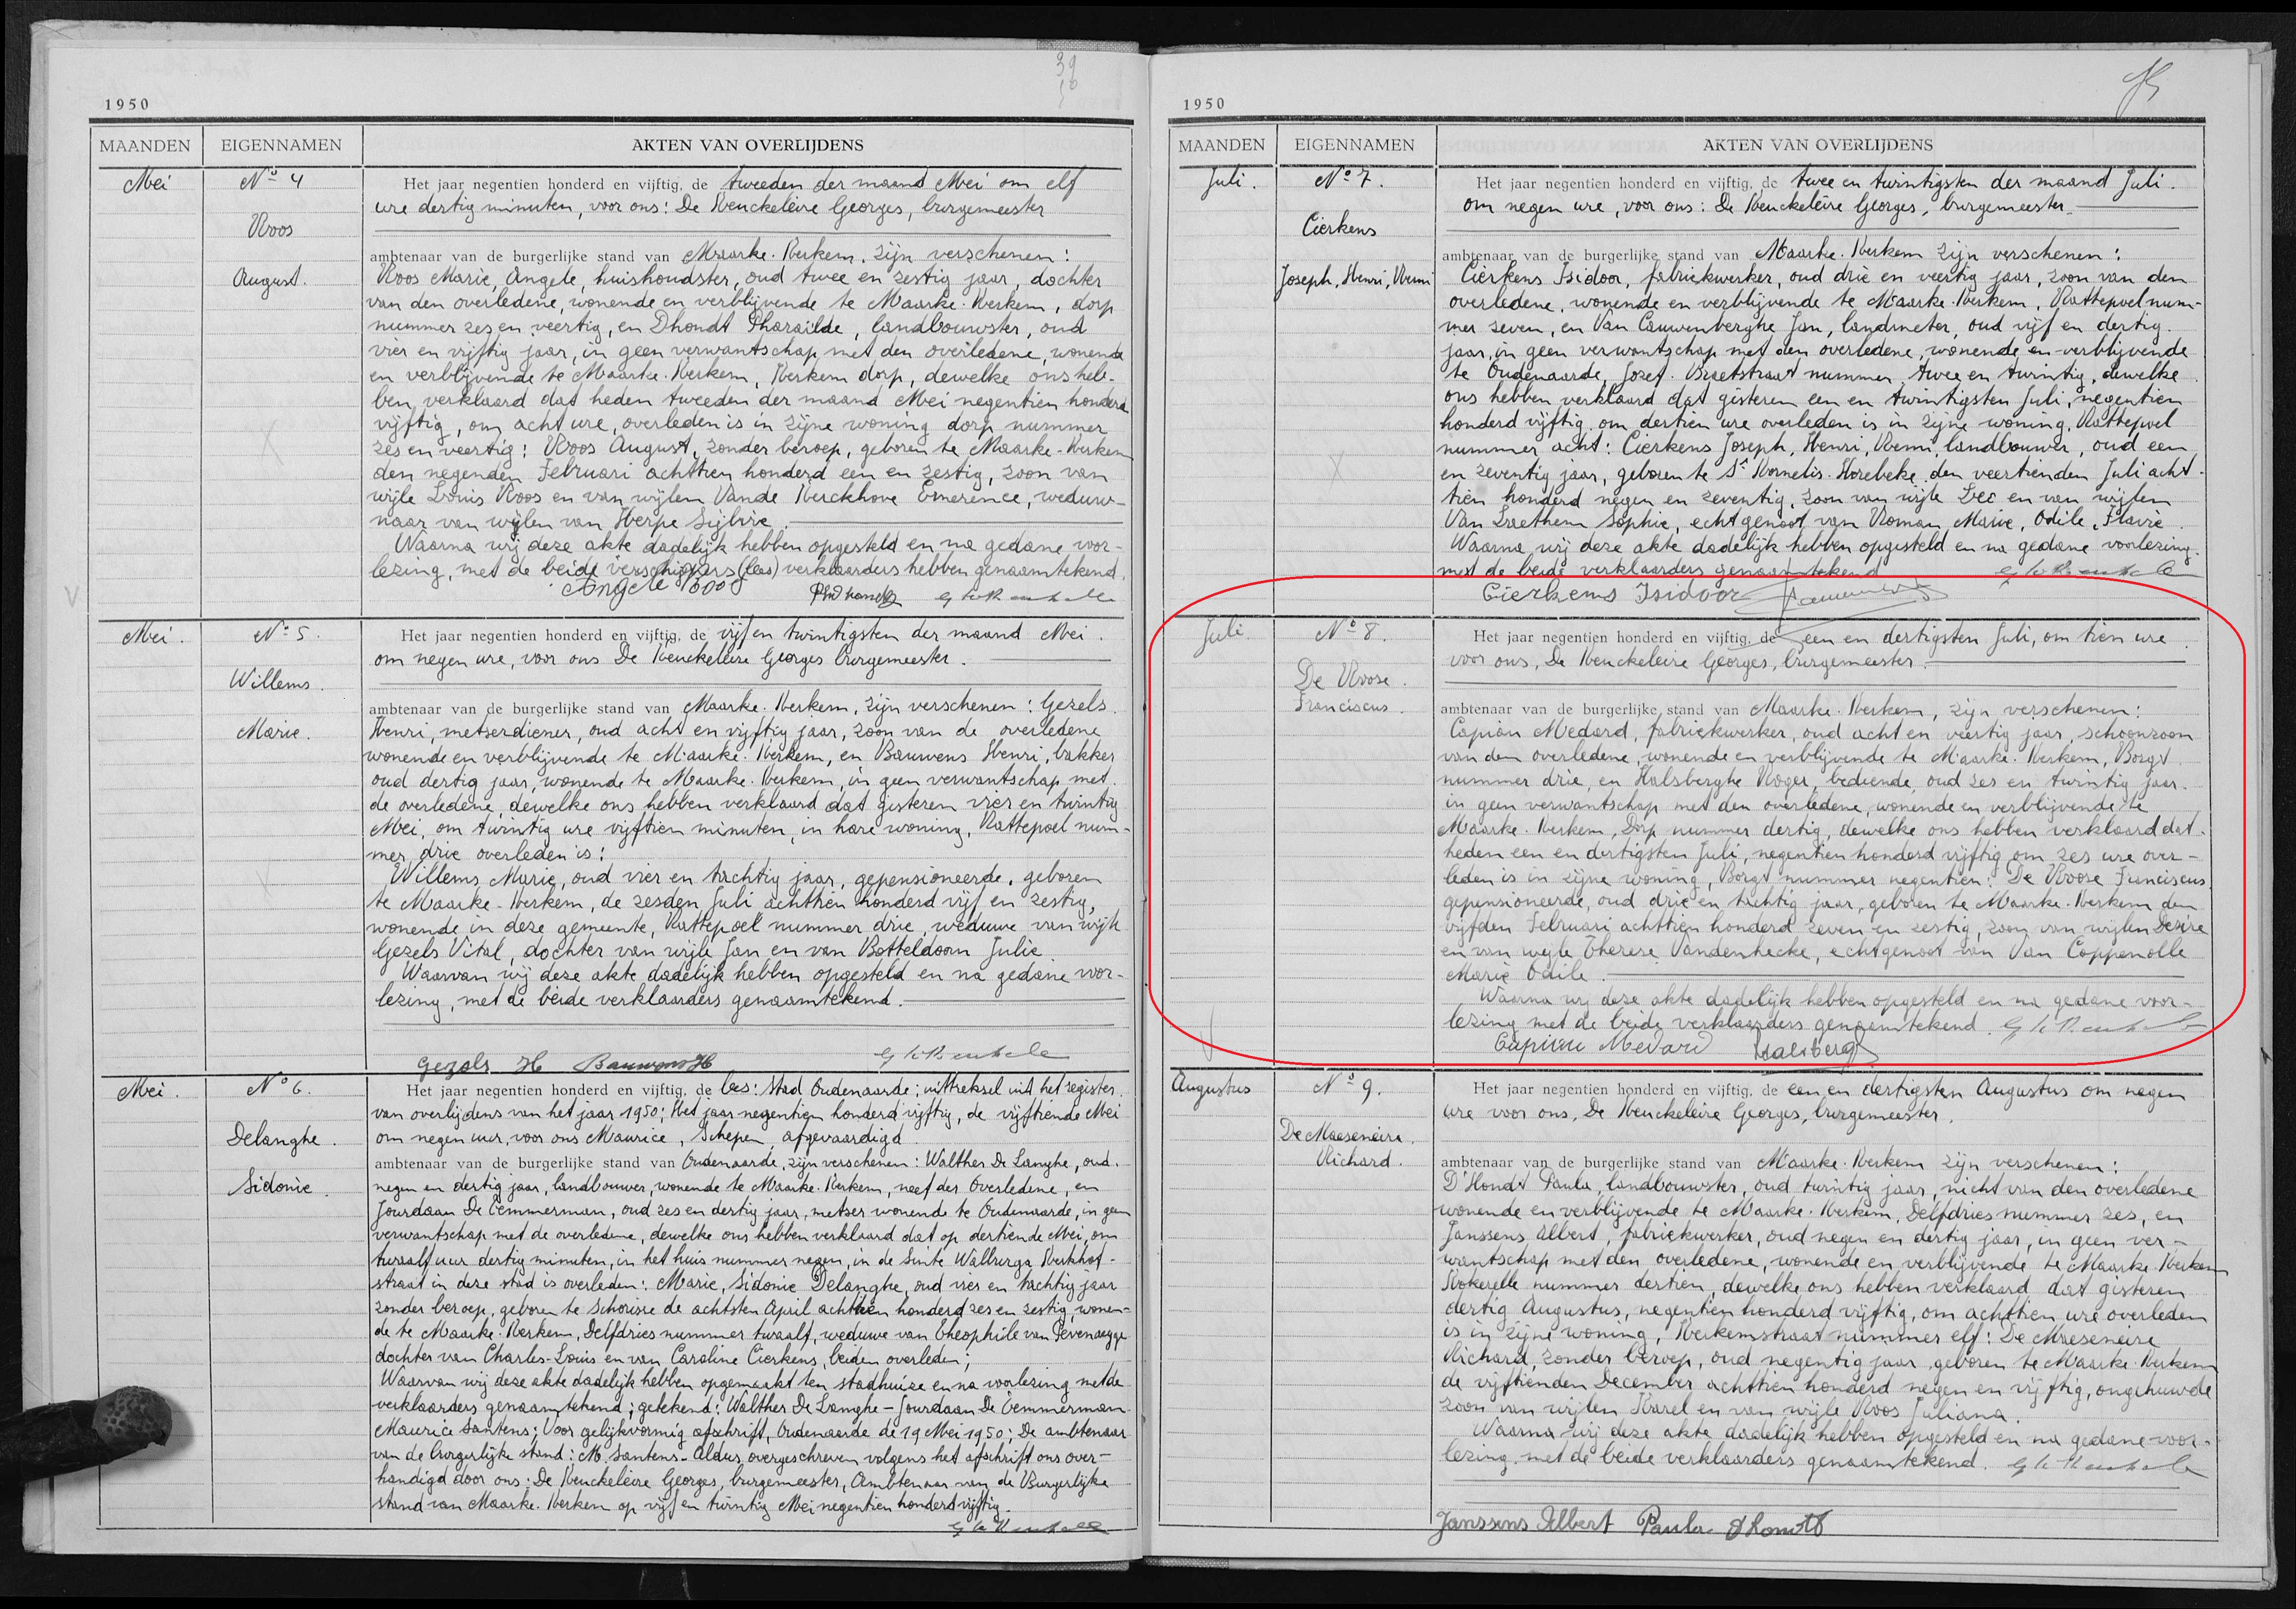 39
1950
MAANDEN EIGENNAMEN AKTEN VAN OVERLIJDENS
Mei Nº 4 Het jaar negentien honderd en vijftig, de tweeden der maand Mei om elf
ure dertig minuten, voor ons: De Keuckeleire Georges, burgemeester
Roos
ambtenaar van de burgerlijke stand van Maarke-Kerkem, zijn verschenen:
August. Roos Marie, Angele, huishoudster, oud twee en zestig jaar, dochter
van den overledene, wonende en verblijvende te Maarke-Kerkem, dorp
nummer zes en veertig, en Dhondt Pharaïlde, landbouwster, oud
vier en vijftig jaar, in geen verwantschap met den overledene, wonende
en verblijvende te Maarke-Kerkem, Kerkem dorp, dewelke ons heb-
ben verklaard dat heden tweeden der maand Mei negentien honderd
vijftig, om acht ure, overleden is in zijne woning dorp nummer
zes en veertig: Roos August, zonder beroep, geboren te Maarke-Kerkem
den negenden Februari achttien honderd een en zestig, zoon van
wijle Louis Roos en van wijlen Vande Kerckhove Emerence, weduw-
naar van wijlen van Herpe Sijlvie.
Waarna wij deze akte dadelijk hebben opgesteld en na gedane voor-
lezing, met de beide verschijners (lees) verklaarders hebben genaamtekend.
Angele Roos
Mei. Nº 5. Het jaar negentien honderd en vijftig, de vijf en twintigsten der maand Mei.
om negen ure, voor ons De Keuckeleire Georges burgemeester.
Willems.
ambtenaar van de burgerlijke stand van Maarke-Kerkem, zijn verschenen: Gezels
Marie. Henri, metserdiener, oud acht en vijftig jaar, zoon van de overledene
wonende en verblijvende te Maarke-Kerkem, en Bauwens Henri, bakker
oud dertig jaar, wonende te Maarke-Kerkem, in geen verwantschap met
de overledene, dewelke ons hebben verklaard dat gisteren vier en twintig
Mei, om twintig ure vijftien minuten, in hare woning, Rattepoel num-
mer drie overleden is:
Willems Marie, oud vier en tachtig jaar, gepensioneerde, geboren
te Maarke-Kerkem, de zesden Juli achttien honderd vijf en zestig,
wonende in deze gemeente, Rattepoel nummer drie, weduwe van wijle
Gezels Vital, dochter van wijle Jan en van Botteldoorn Julie
Waarvan wij deze akte dadelijk hebben opgesteld en na gedane voor-
lezing, met de beide verklaarders genaamtekend.
Gezels H Bauwens H
Mei. Nº 6. Het jaar negentien honderd en vijftig, de lees: Stad Oudenaarde; uittreksel uit het register
van overlijdens van het jaar 1950; Het jaar negentien honderd vijftig, de vijftiende Mei
Delanghe. om negen uur, voor ons Maurice, Schepen, afgevaardigd
ambtenaar van de burgerlijke stand van Oudenaarde, zijn verschenen: Walther De Langhe, oud
Sidonie. negen en dertig jaar, landbouwer, wonende te Maarke-Kerkem, neef der Overledene, en
Jourdaan De Temmerman, oud zes en dertig jaar, metser wonende te Oudenaarde, in geen
verwantschap met de overledene, dewelke ons hebben verklaard dat op dertiende Mei, om
twaalf uur dertig minuten, in het huis nummer negen, in de Sinte Walburga Kerkhof-
straat in deze stad is overleden: Marie, Sidonie Delanghe, oud vier en tachtig jaar
zonder beroep, geboren te Schorisse de achtsten April achttien honderd zes en zestig, wonen-
de te Maarke-Kerkem, Delfdries nummer twaalf, weduwe van Theophile van Pevenaegge
dochter van Charles-Louis en van Caroline Cierkens, beiden overleden;
Waarvan wij deze akte dadelijk hebben opgemaakt ten stadhuize en na voorlezing met de
verklaarders genaamtekend; getekend: Walther De Langhe – Jourdaan De Temmerman
Maurice Santens; Voor gelijkvormig afschrift, Oudenaarde de 19 Mei 1950; De ambtenaar
van de burgerlijke stand: M. Santens - Aldus overgeschreven volgens het afschrift ons over-
handigd door ons: De Keuckeleire Georges, burgemeester, Ambtenaar van de Burgerlijke
stand van Maarke-Kerkem op vijf en twintig Mei negentien honderd vijftig.
1950
MAANDEN EIGENNAMEN AKTEN VAN OVERLIJDENS
Juli. Nº 7. Het jaar negentien honderd en vijftig, de twee en twintigsten der maand Juli.
om negen ure, voor ons: De Keuckeleire Georges, burgemeester.
Cierkens
ambtenaar van de burgerlijke stand van Maarke-Kerkem zijn verschenen:
Joseph, Henri, Remi Cierkens Isidoor, fabriekwerker, oud drie en veertig jaar, zoon van den
overledene, wonende en verblijvende te Maarke-Kerkem, Rattepoel num-
mer zeven, en Van Cauwenberghe Jan, landmeter, oud vijf en dertig
jaar, in geen verwantschap met den overledene, wonende en verblijvende
te Oudenaarde, Jozef Braetstraat nummer twee en twintig, dewelke
ons hebben verklaard dat gisteren een en twintigsten Juli, negentien
honderd vijftig om dertien ure overleden is in zijne woning, Rattepoel
nummer acht: Cierkens Joseph, Henri, Remi, landbouwer, oud een
en zeventig jaar, geboren te St Kornelis-Horebeke den veertienden Juli acht-
tien honderd negen en zeventig, zoon van wijle Leo en van wijlen
Van Laethem Sophie, echtgenoot van Roman, Marie, Odile, Flavie.
Waarna wij deze akte dadelijk hebben opgesteld en na gedane voorlezing
met de beide verklaarders genaamtekend
Cierkens Isidoor
Juli Nº 8. Het jaar negentien honderd en vijftig, de een en dertigsten Juli, om tien ure
voor ons, De Keuckeleire Georges, burgemeester.
De Roose.
Franciscus. ambtenaar van de burgerlijke stand van Maarke-Kerkem, zijn verschenen:
Capiau Medard, fabriekwerker, oud acht en veertig jaar, schoonzoon
van den overledene, wonende en verblijvende te Maarke-Kerkem, Borgt
nummer drie, en Halsberghe Roger, bediende, oud zes en twintig jaar.
in geen verwantschap met den overledene, wonende en verblijvende te
Maarke-Kerkem, Dorp nummer dertig, dewelke ons hebben verklaard dat
heden een en dertigsten Juli, negentien honderd vijftig om zes ure over-
leden is in zijne woning, Borgt nummer negentien: De Roose Franciscus
gepensioneerde, oud drie en tachtig jaar, geboren te Maarke-Kerkem den
vijfden Februari achttien honderd zeven en zestig, zoon van wijlen Desire
en van wijle Therese Vandenhecke, echtgenoot van Van Coppenolle
Marie Odile.
Waarna wij deze akte dadelijk hebben opgesteld en na gedane voor-
lezing met de beide verklaarders genaamtekend.
Capiau Medard Halsberg
Augustus Nº 9. Het jaar negentien honderd en vijftig, de een en dertigsten Augustus om negen
ure voor ons, De Keuckeleire Georges, burgemeester.
De Maeseneire.
Richard. ambtenaar van de burgerlijke stand van Maarke-Kerkem zijn verschenen:
D'Hondt Paula, landbouwster, oud twintig jaar, nicht van den overledene
wonende en verblijvende te Maarke-Kerkem, Delfdries nummer zes, en
Janssens Albert, fabriekwerker, oud negen en dertig jaar, in geen ver-
wantschap met den overledene, wonende en verblijvende te Maarke-Kerkem
Kokerelle nummer dertien, dewelke ons hebben verklaard dat gisteren
dertig Augustus, negentien honderd vijftig, om achttien ure overleden
is in zijne woning, Kerkemstraat nummer elf: De Maeseneire
Richard, zonder beroep, oud negentig jaar, geboren te Maarke-Kerkem
de vijftienden December achttien honderd negen en vijftig, ongehuwde
zoon van wijlen Karel en van wijle Roos Juliana.
Waarna wij deze akte dadelijk hebben opgesteld en na gedane voor-
lezing met de beide verklaarders genaamtekend.
Janssens Albert Paula D'hondt